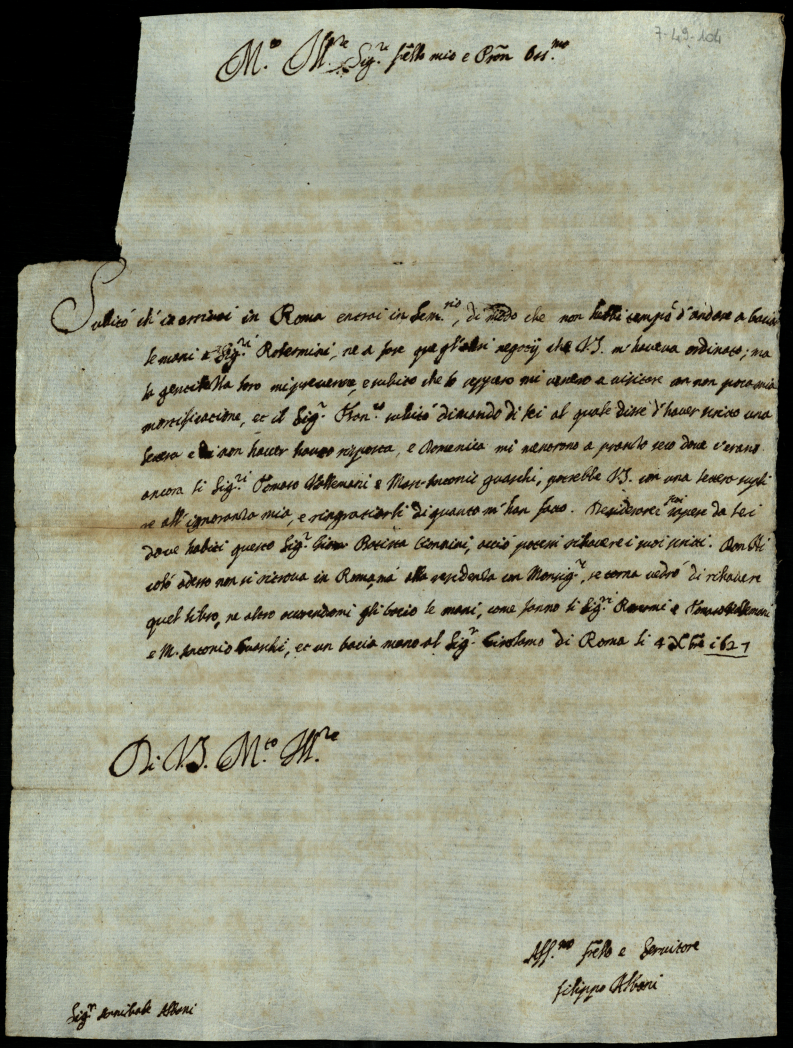 7-49-104
M.to Ill.re Sig.re f̃ello mio e P̃ron Oss.mo
Subito ch'io arrivai in Roma entrai in Sem.rio, di modo che non hebbi tempo d'andare a bacia
le mani a Sig.ri Rosermini, ne a fare que gl'altri negotij che V.S. m'haveva ordinato; ma
la gentilezza loro mi prevenne, e subito che lo seppero mi vennero a visitare con non poca mia
mortificatione, et il Sig.r Fran.co subito dimandò di lei al quale disse d'haver scritto una
lettera e di non haver havuto risposta, e Domenica mi menorono a pranso seco dove v'erano
ancora li Sig.ri Tomaso e Marc'Antonio guaschi, potrebbe V.S. con una lettera suppli
re all'ignoranza mia, e ringratiarli di quanto m'han fatto. Desiderarei sapere da lei
dove habiti questo Sig.r Batista, acciò potessi rihavere i suoi scritti. Don Ni
colò adesso non si ritrova in Roma, ma alla residenza con Monsig.re, se torna vedrò di rihavere
quel libro, ne altro occorrendomi gli bacio le mani, come fanno li Sig.ri e Tomaso
e M. Antonio Guaschi, et un bacia mano al Sig.r Girolamo di Roma li 4 Xbre 1627
Di V.S. M.to Ill.re
Aff.mo f̃ello e Servitore
filippo Albani
Sig.r Annibale Albani